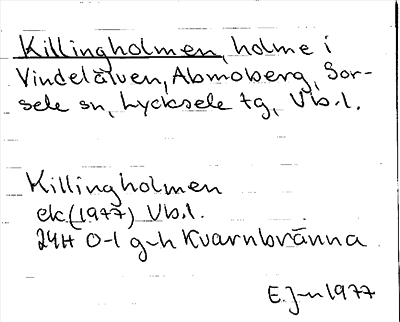 Killingholmen, holme i
Vindelälven, Abmoberg, Sor-
sele sn, Lycksele tg, Vb.l.
Killingholmen
ek (1977) Vb.l.
24H 0-1 g-h Kvarnbränna
E.J-n 1977